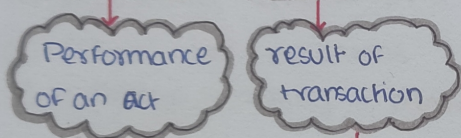 Performance
of an act
result of
transaction